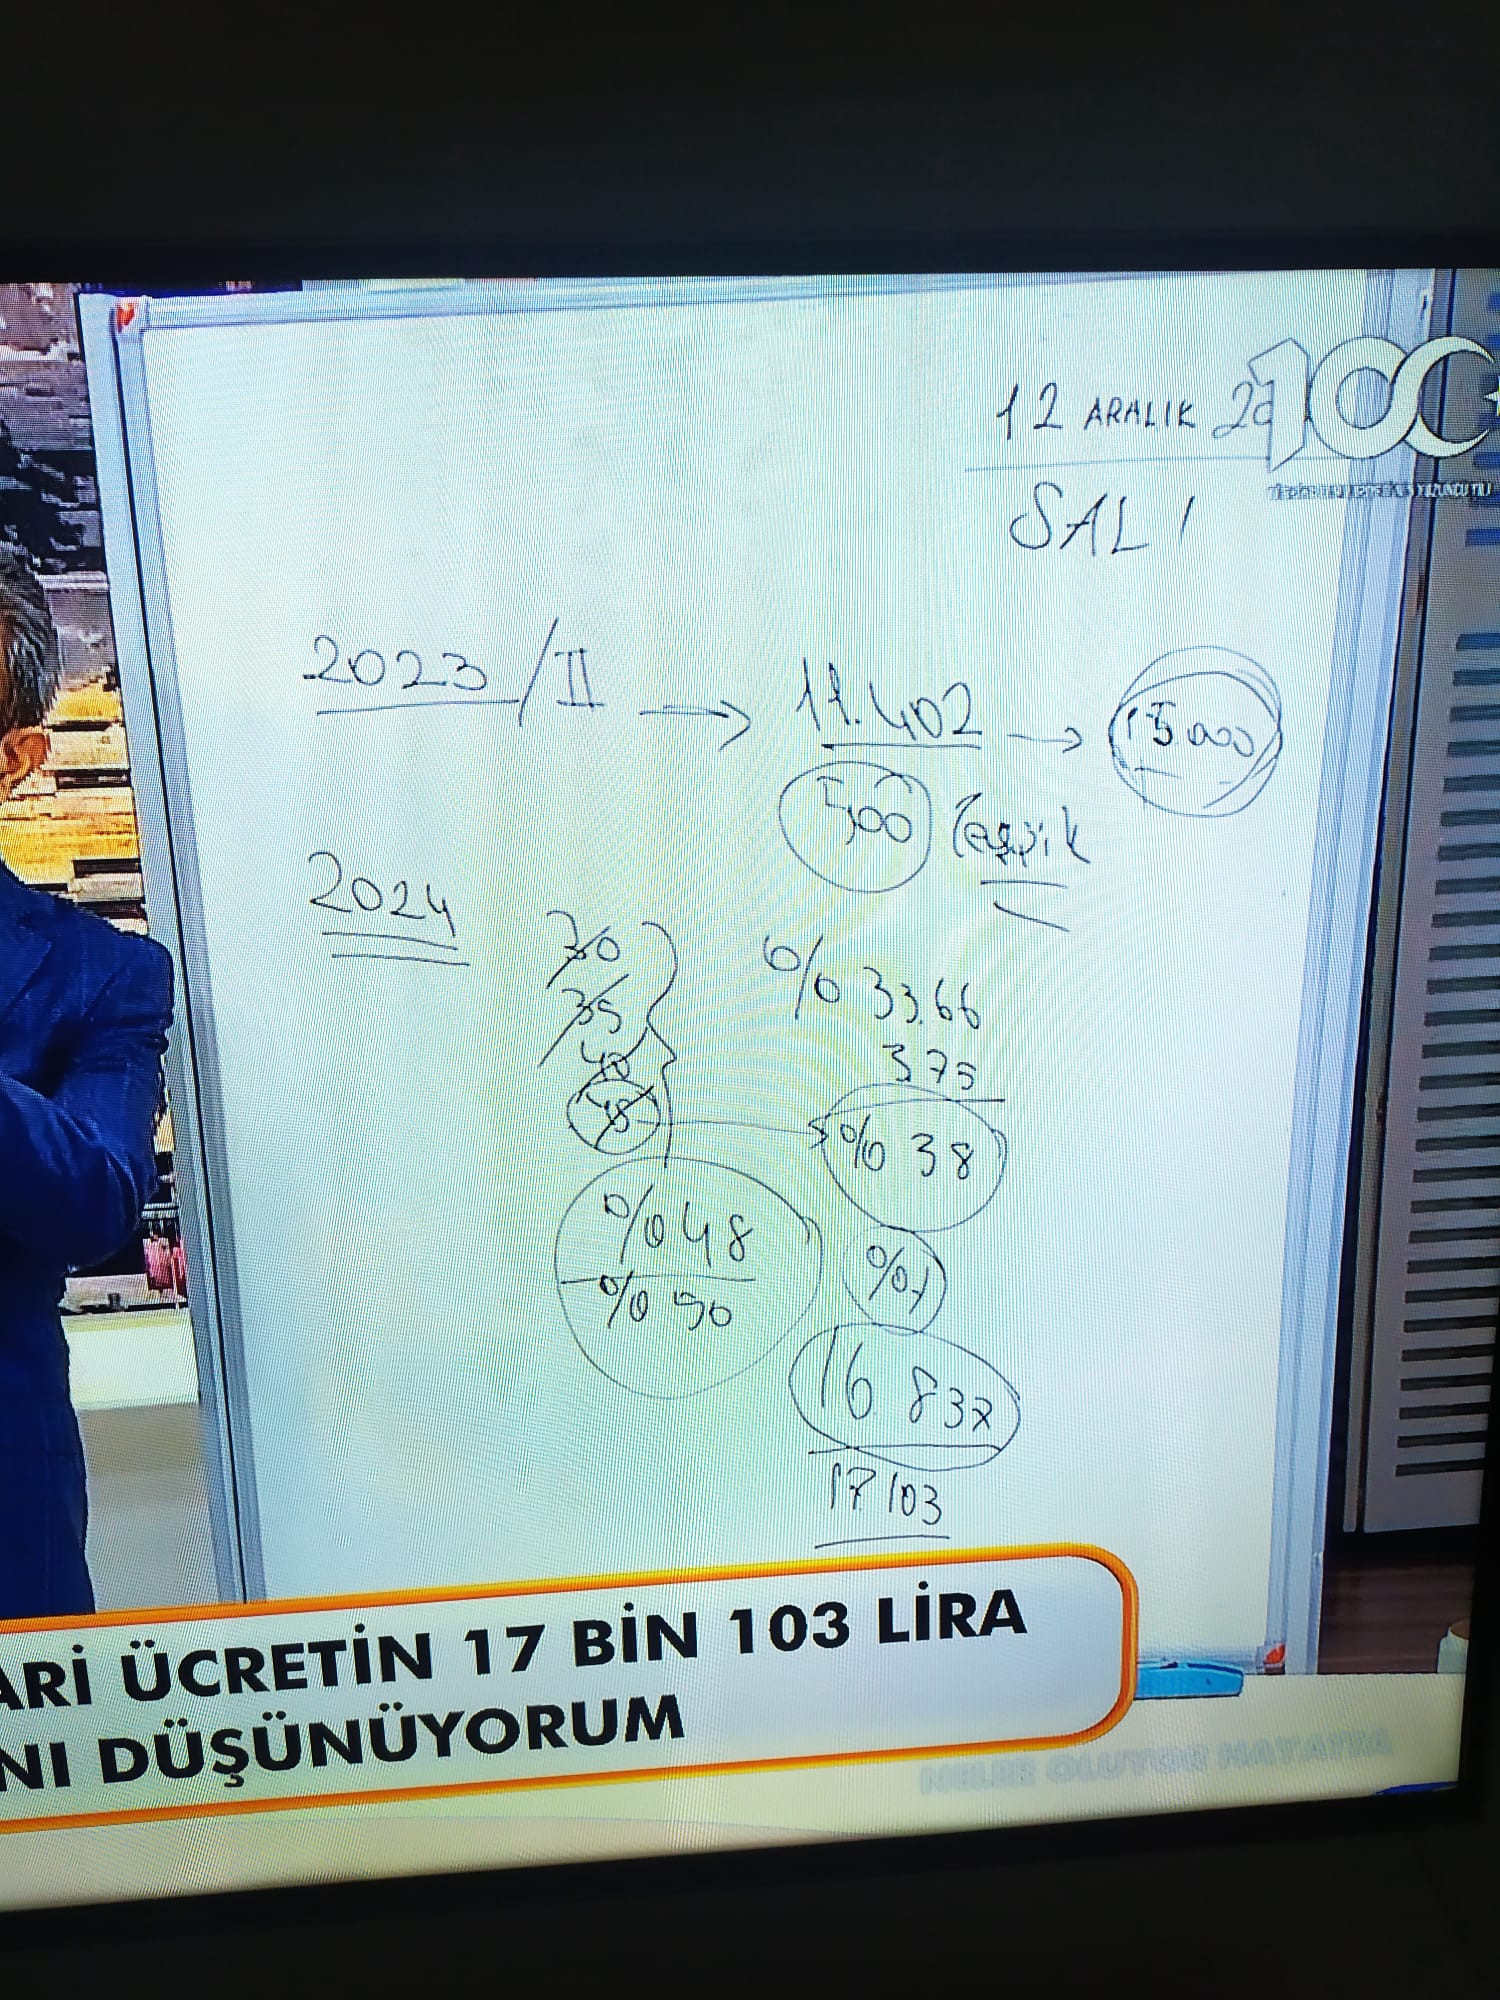 12 ARALIK 20
100
SALI
2023/II → 11.402 → 15.000
500 Teşvik
2024
30
35
40
45
% 33.66
3.75
% 38
% 48
% 50
16 837
17 103
ARİ ÜCRETİN 17 BİN 103 LİRA
NI DÜŞÜNÜYORUM
NELER OLUYOR HAYATTA